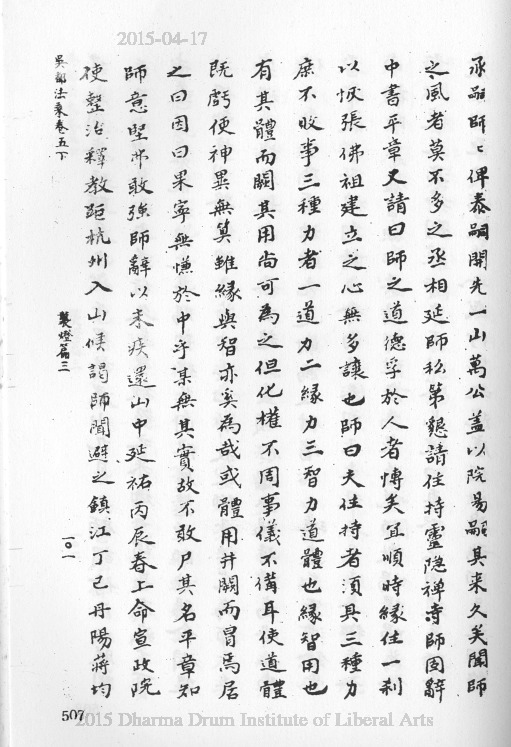 2015-04-17
承嗣師〻俾泰嗣開先一山萬公蓋以院易嗣其来久矣聞師
之風者莫不多之丞相延師私第懇請住持靈隐禅寺師固辭
中書平章又請曰師之道德孚於人者博矣宜順時緣住一刹
以恢張佛祖建立之心無多讓也師曰夫住持者須具三種力
庶不敗事三種力者一道力二緣力三智力道體也緣智用也
有其體而闕其用尚可為之但化權不周事儀不備耳使道體
既虧便神異無筭雖緣與智亦奚為哉或體用并闕而冒焉居
之曰因曰果寧無慊於中乎某無其實故不敢尸其名平章知
師意堅弗敢強師辭以末疾還山中延祐丙辰春上命宣政院
使整治釋教距杭州入山候謁師聞避之鎮江丁巳丹陽蔣均
吳都法乗卷五下
襲燈篇三
一〇一
507
2015 Dharma Drum Institute of Liberal Arts